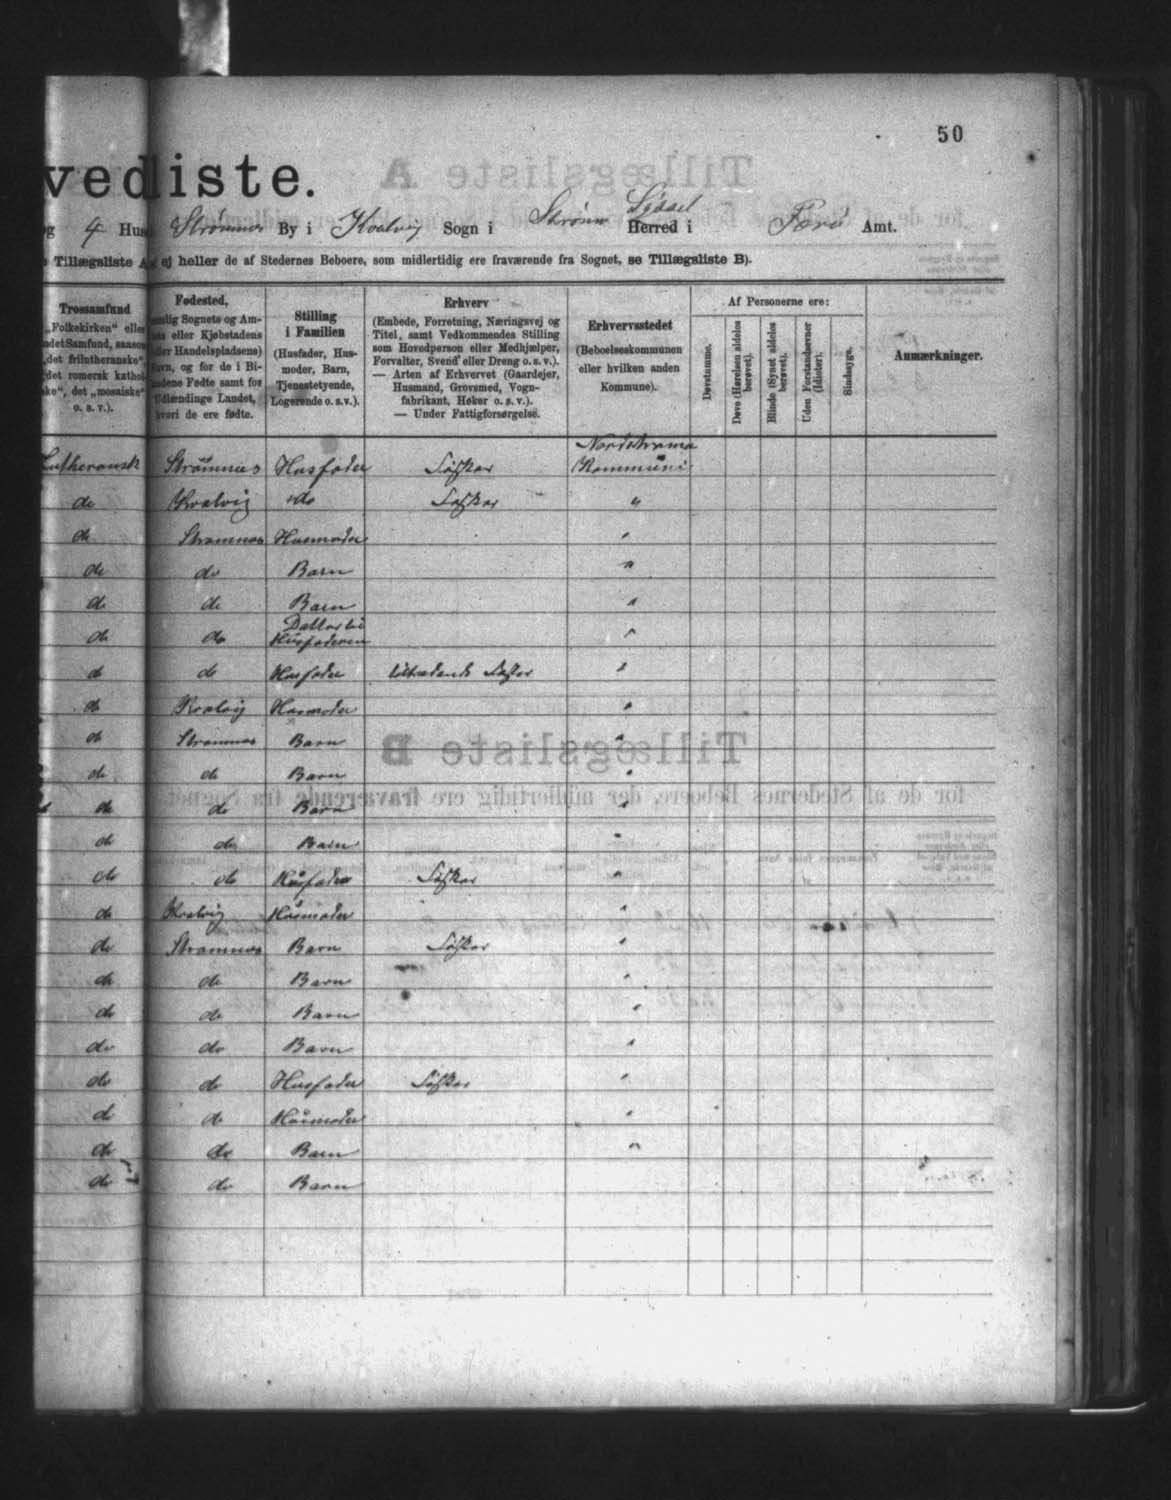 50
vedliste.
og 4 Huse Strømnæs By i Kvalvig Sogn i Strømø Syssel Herred i Færø Amt.
Tillægsliste A ej heller de af Stedernes Beboere, som midlertidig ere fraværende fra Sognet, se Tillægsliste B).
Trossamfund
„Folkekirken“ eller
andet Samfund, saasom
„det frilutheranske“,
„det romersk kathol
ske“, det „mosaiske“
o. s. v.).
Fødested,
nemlig Sognets og Am-
ets eller Kjøbstadens
eller Handelspladsens)
Navn, og for de i Bi-
landene Fødte samt for
Udlændinge Landet,
hvori de ere fødte.
Stilling
i Familien
(Husfader, Hus-
moder, Barn,
Tjenestetyende,
Logerende o. s. v.).
Erhverv
(Embede, Forretning, Næringsvej og
Titel, samt Vedkommendes Stilling
som Hovedperson eller Medhjælper,
Forvalter, Svend eller Dreng o. s. v.).
— Arten af Erhvervet (Gaardejer,
Husmand, Grovsmed, Vogn-
fabrikant, Høker o. s. v.).
— Under Fattigforsørgelse.
Erhvervsstedet
(Beboelseskommunen
eller hvilken anden
Kommune).
Af Personerne ere:
Døvstumme.
Døve (Hørelsen aldeles
berøvet).
Blinde (Synet aldeles
berøvet).
Uden Forstandsevner
(Idioter).
Sindssyge.
Anmærkninger.
Nordstrømø
Luthersk Strømnæs Husfader Fisker Kommune
do Kvalvig do Fisker "
do Strømnæs Husmoder "
do do Barn "
do do Barn "
Datter til
do do Husfaderen "
do do Husfader Fisker "
do Kvalvig Husmoder "
do Strømnæs Barn "
do do Barn "
do do Barn "
do do Barn "
do do Husfader Fisker "
do Kvalvig Husmoder "
do Strømnæs Barn Fisker "
do do Barn "
do do Barn "
do do Barn "
do do Husfader Fisker "
do do Husmoder "
do do Barn "
do do Barn